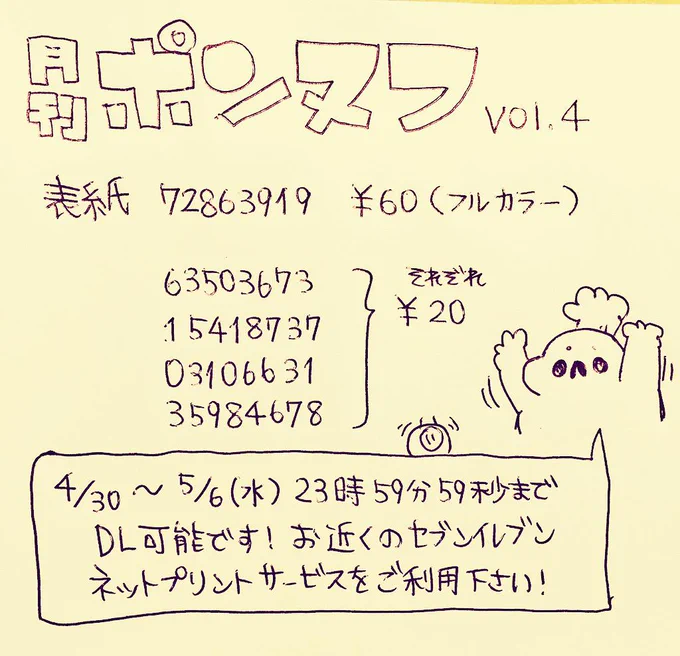 月刊 ポンヌフ vol.4
表紙 72863919 ¥60(フルカラー)
63503673
15418737
03106631
35984678
それぞれ
¥20
4/30 〜 5/6(水) 23時59分59秒まで
DL可能です! お近くのセブンイレブン
ネットプリントサービスをご利用下さい!